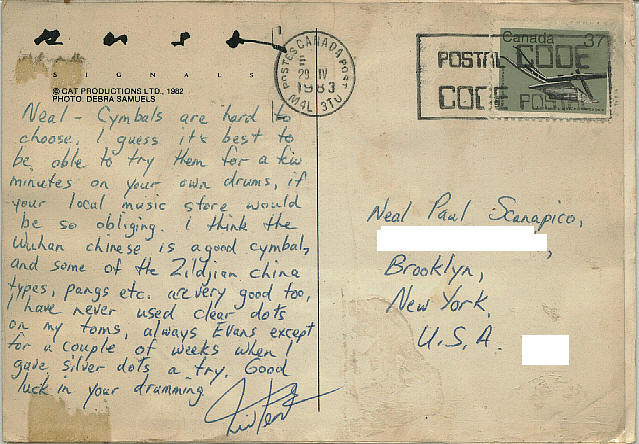 rush
SIGNALS
© CAT PRODUCTIONS LTD., 1982
PHOTO: DEBRA SAMUELS
Neal - Cymbals are hard to
choose, I guess it's best to
be able to try them for a few
minutes on your own drums, if
your local music store would
be so obliging. I think the
Wuhan chinese is a good cymbal,
and some of the Zildjian china
types, pangs etc. are very good too,
I have never used clear dots
on my toms, always Evans except
for a couple of weeks when I
gave silver dots a try. Good
luck in your drumming.
POSTES CANADA POST
29 IV
1983
M4L 3T0
Canada 37
POSTAL CODE
CODE POSTAL
Neal Paul Scanapico,
Brooklyn,
New York,
U.S.A.